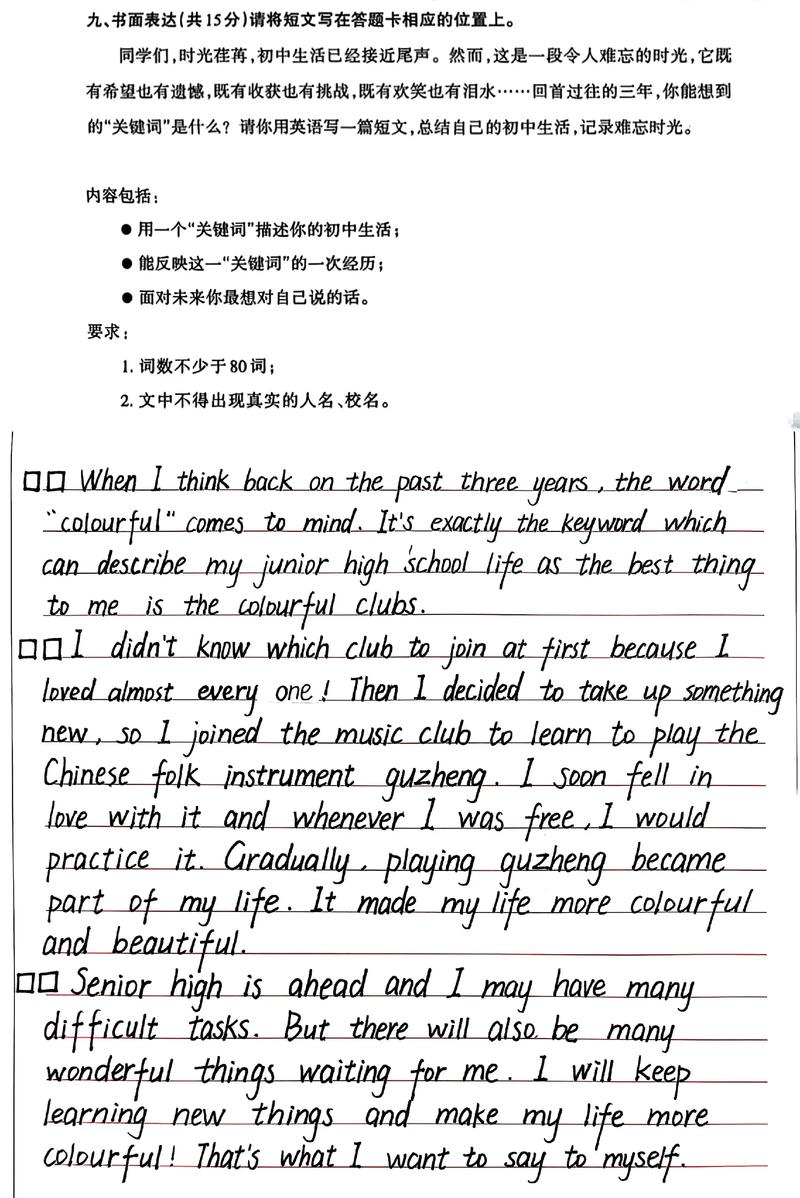 九、书面表达(共15分)请将短文写在答题卡相应的位置上。
同学们,时光荏苒,初中生活已经接近尾声。然而,这是一段令人难忘的时光,它既
有希望也有遗憾,既有收获也有挑战,既有欢笑也有泪水……回首过往的三年,你能想到
的“关键词”是什么？请你用英语写一篇短文,总结自己的初中生活,记录难忘时光。
内容包括:
●用一个“关键词”描述你的初中生活;
●能反映这一“关键词”的一次经历;
●面对未来你最想对自己说的话。
要求:
1. 词数不少于80词;
2. 文中不得出现真实的人名、校名。
□□ When I think back on the past three years, the word
"colourful" comes to mind. It's exactly the keyword which
can describe my junior high school life as the best thing
to me is the colourful clubs.
□□ I didn't know which club to join at first because I
loved almost every one! Then I decided to take up something
new, so I joined the music club to learn to play the
Chinese folk instrument guzheng. I soon fell in
love with it and whenever I was free, I would
practice it. Gradually, playing guzheng became
part of my life. It made my life more colourful
and beautiful.
□□ Senior high is ahead and I may have many
difficult tasks. But there will also be many
wonderful things waiting for me. I will keep
learning new things and make my life more
colourful! That's what I want to say to myself.